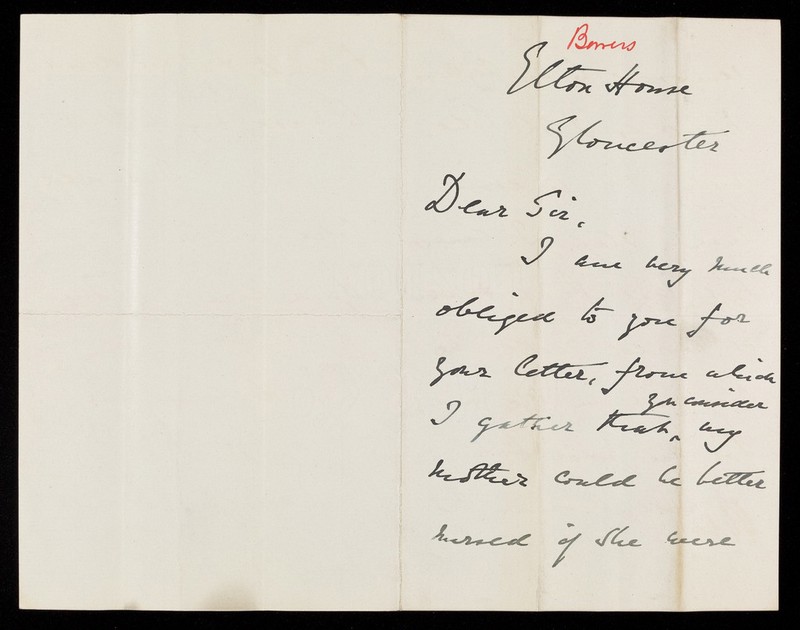 Bowers
Elton House
Gloucester
Dear Sir,
I am very much
obliged to you for
your letter, from which
you consider
I gather that ‸ my
mother could be better
nursed if she were